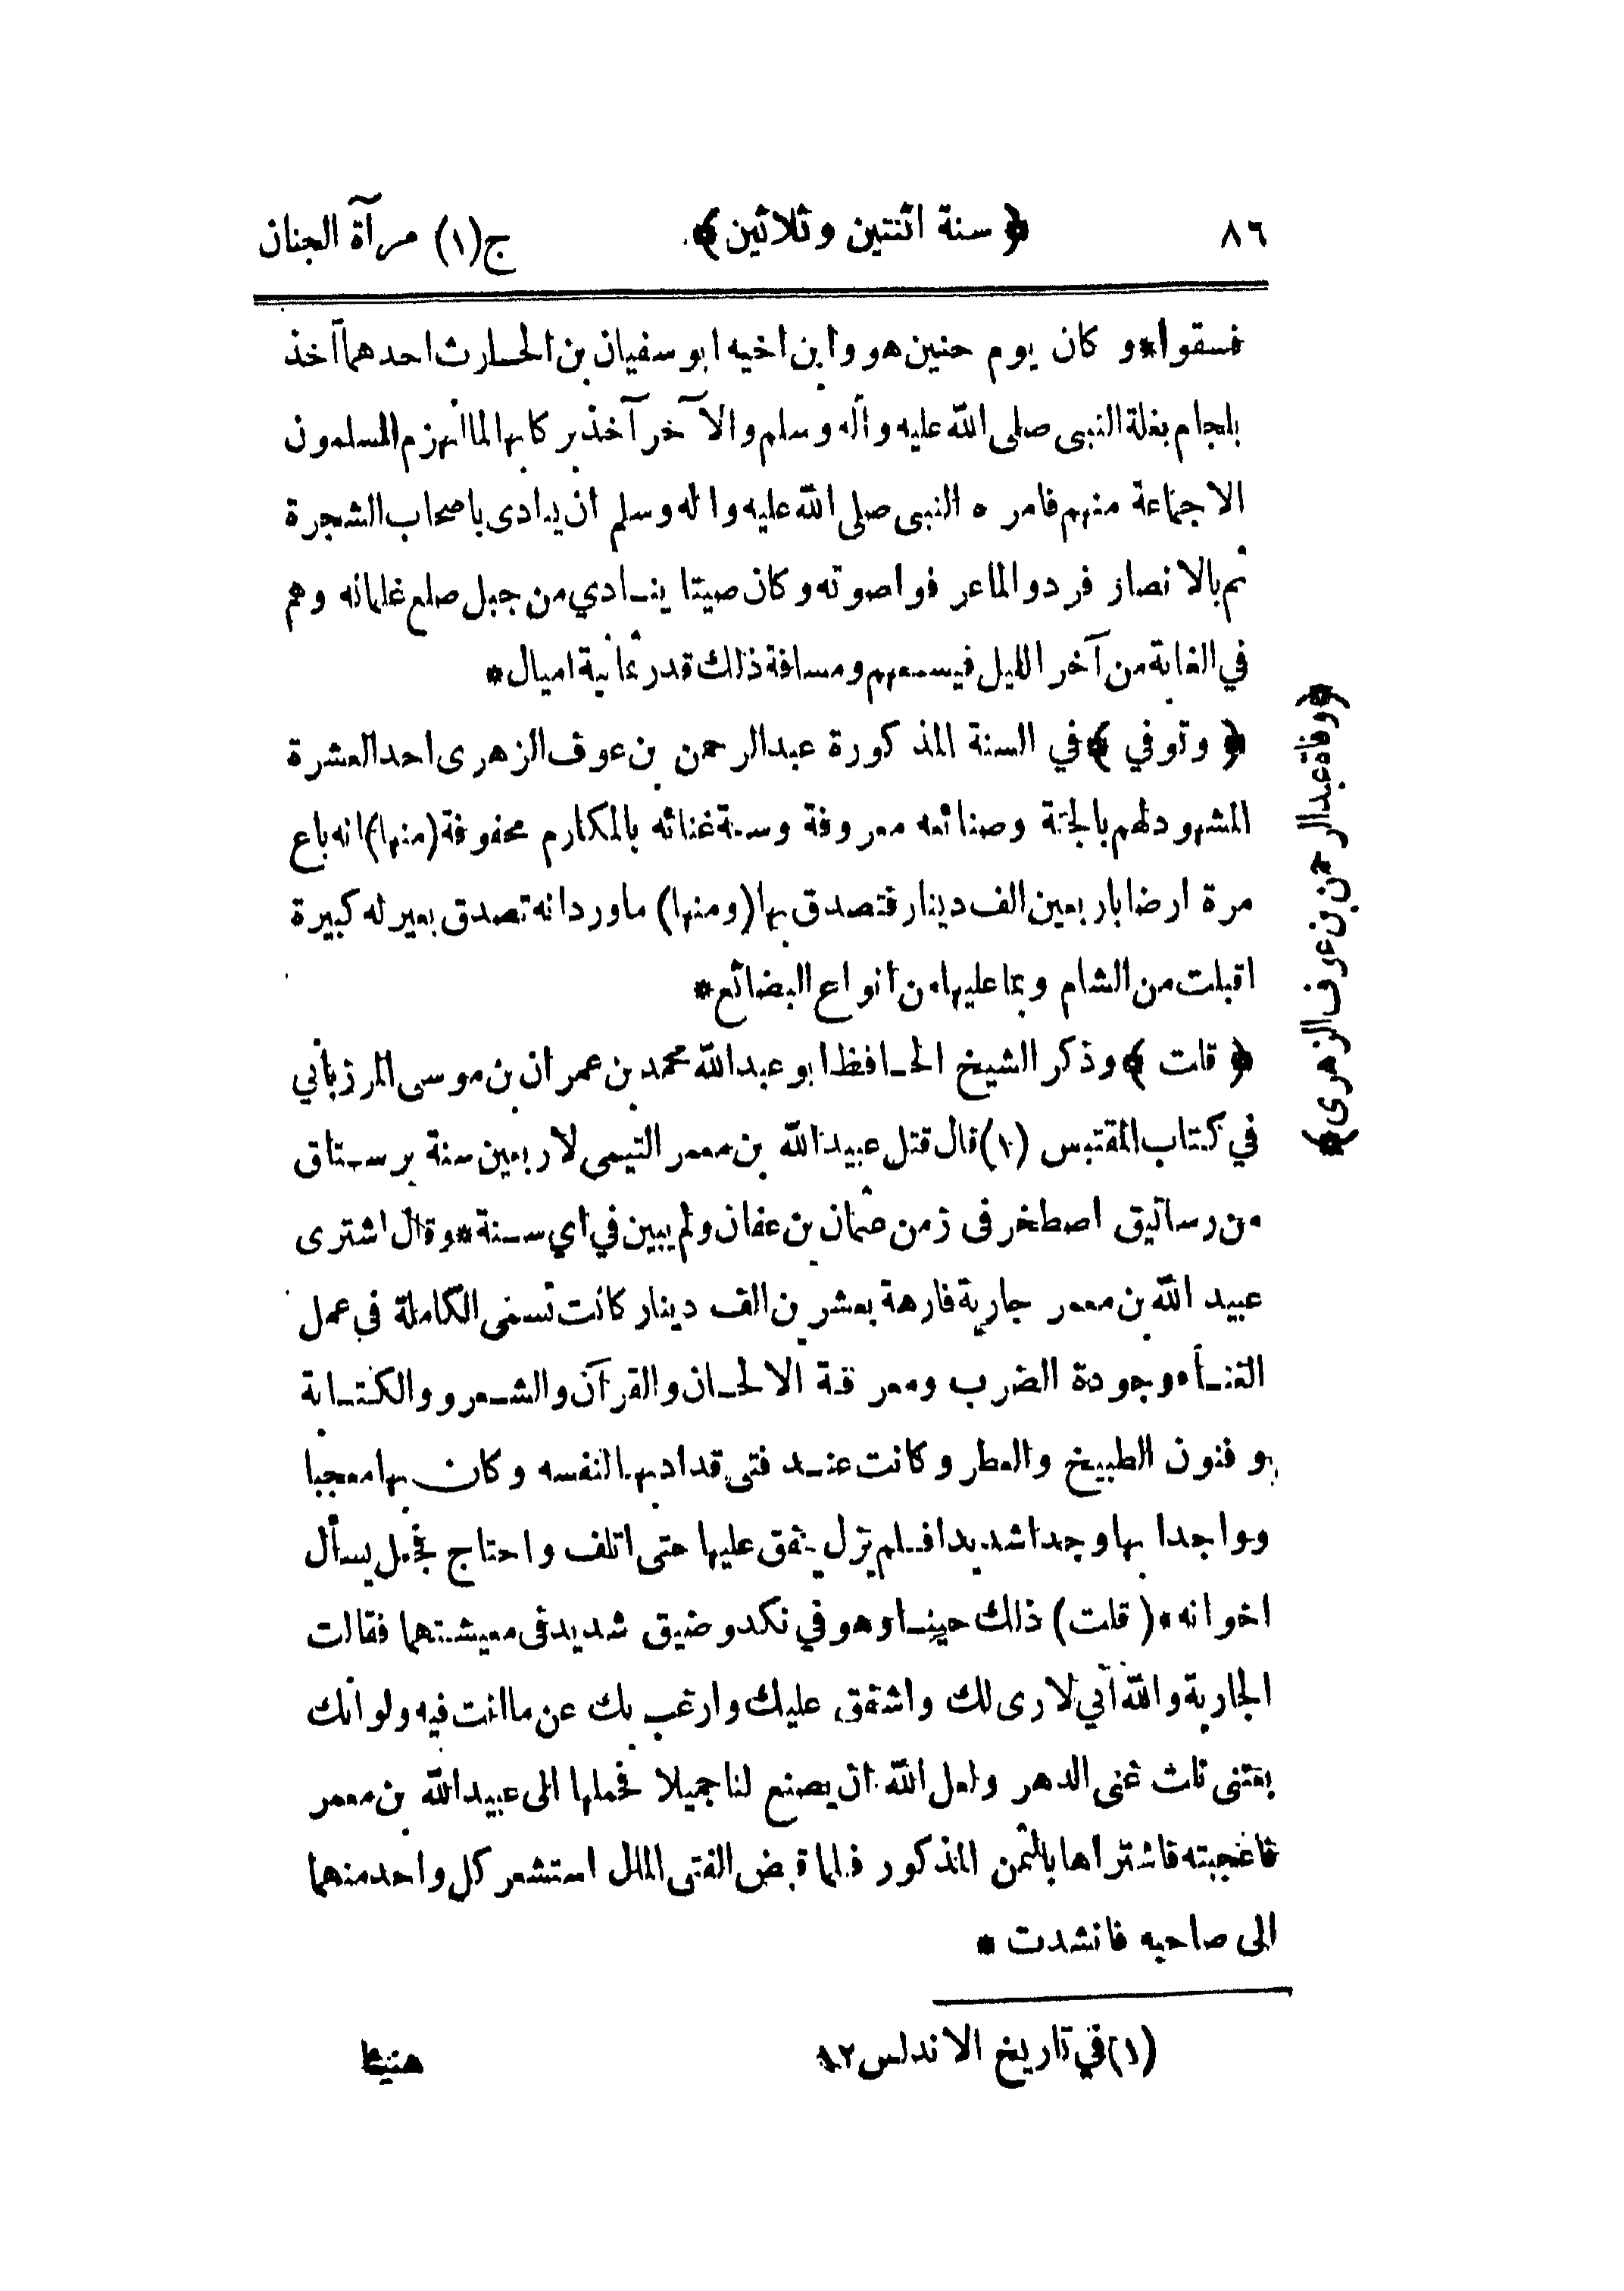 ٨٦ ﴿ سنة اثنتين وثلاثين ﴾ ج(١) مرآة الجنان
فسقوا * وكان يوم حنين هو وابن اخيه ابو سفيان بن الحارث احدهما آخذ
بلجام بغلة النبى صلى الله عليه وآله وسلم والآخر آخذ بركابها لما انهزم المسلمون
الاجماعة منهم فامره النبى صلى الله عليه واله وسلم ان ينادى باصحاب الشجرة
ثم بالانصار فردوا لما عرفوا صوته وكان صيتا ينادي من جبل صلع غلمانه وهم
في الغابة من آخر الليل فيسمعهم ومسافة ذلك قدر ثمانية اميال *
﴿ وتوفي ﴾ في السنة المذكورة عبدالرحمن بن عوف الزهرى احد العشرة
المشهود لهم بالجنة وصنائعه معروفة وسعة غنائه بالمكارم محفوفة (منها) انه باع
مرة ارضا باربعين الف دينار فتصدق بها (ومنها) ماورد انه تصدق بعير له كبيرة
اقبلت من الشام وبما عليها من انواع البضائع *
﴿ قلت ﴾ وذكر الشيخ الحافظ ابو عبدالله محمد بن عمران بن موسى المرزباني
في كتاب المقتبس (١) قال قتل عبيدالله بن معمر التيمى لاربعين سنة برستاق
من رساتيق اصطخر فى زمن عثمان بن عفان ولم يبين في اي سنة * وقال اشترى
عبيد الله بن معمر جارية فارهة بعشرين الف دينار كانت تسمى الكاملة في عمل
الغناء وجودة الضرب ومعرفة الالحان والقرآن والشعر و والكتابة
و فنون الطبيخ والعطر وكانت عند فتى قد ادبها لنفسه وكان بها معجبا
وواجدا بها وجدا شديدا فلم يزل ينفق عليها حتى اتلف واحتاج فجعل يسأل
اخوانه * (قلت) ذلك حينا وهو في نكد وضيق شديد فى معيشتهما فقالت
الجارية والله انّي لارى لك واشفق عليك وارغب بك عن ما انت فيه ولو انك
بعتنى نلت غنى الدهر ولعل الله ان يصنع لنا جميلا فحملها الى عبيدالله بن معمر
فاعجبته فاشتراها بالثمن المذكور فلما قبض الفتى المال استشعر كل واحد منهما
الى صاحبه فانشدت *
(١) في تاريخ الاندلس ١٢
هنيئا
﴿ وفاة عبدالرحمن بن عوف الزهرى ﴾